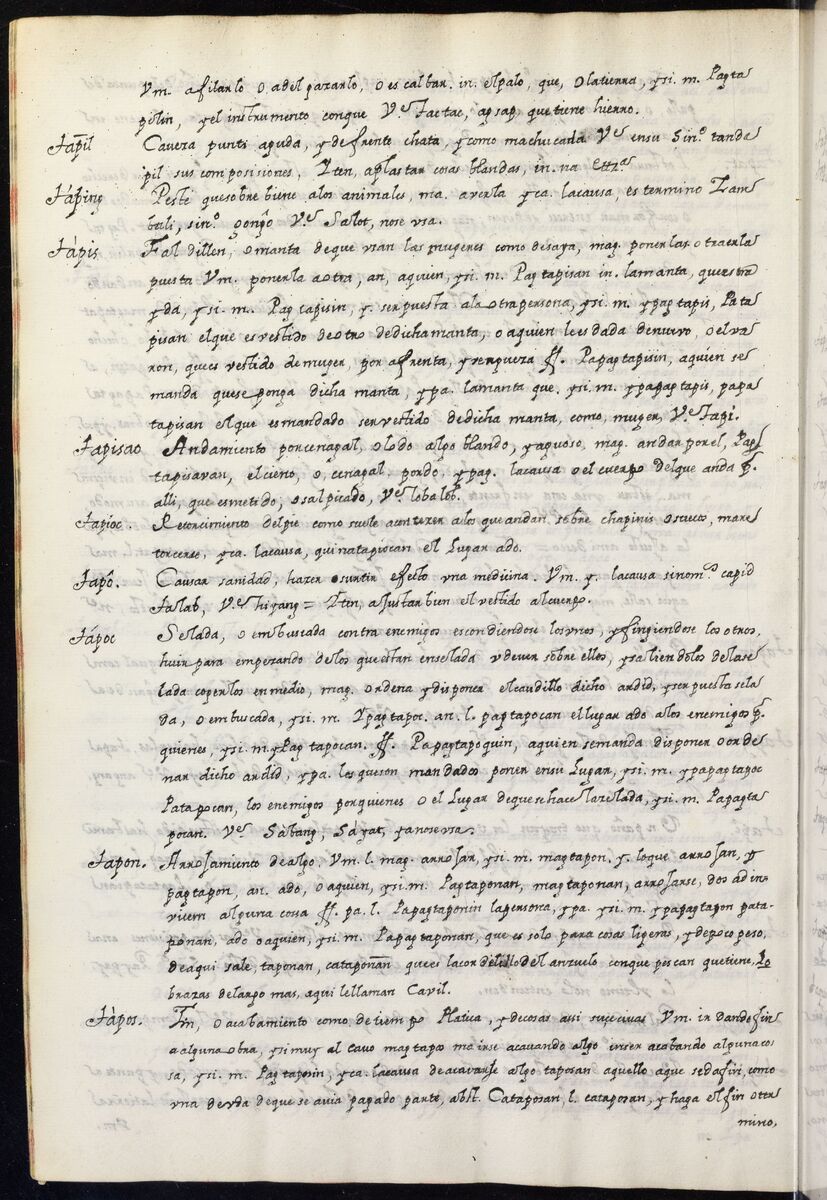 Vm. afilarlo o adelgazarlo, o escalbar. in. el palo, que, o la tierra, ysi. m. Pagta
pilin, y el instrumento conque V.e Tactac, agsap, que tiene hierro.
Tapil Cavera punti aguda, y de frente chata, y como machucada V.e en su Sin.o tanda
pil sus composiciones, Yten, aplastar cosas blandas, in. na ettz.a
Táping Peste que sobre biene alos animales, ma. averla yca. la causa, es termino Zam
bali, sin.o V.e Salot, nose usa.
Tápis Faldillen, o manta de que usan las mugeres como de saya, mag. ponerlas o traerla
puesta Vm. ponerla a otra, an, a quien, ysi. m. Pagtapisan in. la manta, que
y da, ysi. m. Pag tapisin, y. ser puesta ala otra persona, ysi. m. ypagtapis, Pata
pisan el que es vestido de otro de dicha manta, o a quien le es dada de nuevo, o el va
ron, que es vestido de muger, por afrenta, y verguera ff. Papagtapisin, a quien se
manda que se ponga dicha manta, ypa. la manta que. ysi. m. ypapagtapis, papa
tapisan el que es mandado ser vestido de dicha manta, como, muger, V.e Tapi.
Tapisao Andamiento por cenagal, o lodo algo blando, y aguoso, mag. andar por el, Pag
tapisavan, el cieno, o, cenagal, por do, ypag. la causa o el cuerpo del que anda p.
alli, que es metido, o salpicado, V.e lobalob.
Tapioc. Retorcimiento del pie como suele acontezer alos que andan, sobre chapinis o suecos, mare
torcerse, yca. la causa, quinatapiocan el Lugar ado.
Tapô. Causar sanidad, hazer o surtir efecto una medicina. Vm. y. la causa sinom.o capid
talab, V.e hiyang = Yten, ajustar bien el vestido al cuerpo.
Tápoc Selada, o embuscada contra enemigos escondiendose los unos, y fingiendose los otros,
huir para emperando delos que estan en selada y dever sobre ellos, y saliendoles dela se
lada cogerlos en medio, mag. ordena y disponer el caudillo dicho ardid, y ser puesta sela
da, o embuscada, ysi. m. Ypagtapoc. an. l. pagtapocan el lugar ado alos enemigos p.
quienes, ysi. m. y Pag tapocan. ff. Papagtapoquin, a quien se manda disponer o orde
nar dicho ardid, ypa. los que son mandados poner en su Lugar, ysi. m. ypapagtapoc
Patapocan, los enemigos por quienes o el Lugar de que se hace la zelada, ysi. m. Papagta
pocan. V.e Sàbang, Sáyat, ya nose usa.
Tapon. Arrojamiento de algo. Vm. l. mag. arrojar, ysi. m. magtapon. y. loque arrojan, y
pagtapon, an. ado, o a quien, ysi. m. Pagtaponan, magtaponan, arrojarse, dos ad in
vicem alguna cossa ff. pa. l. Papagtaponin la persona, ypa. ysi. m. ypapagtapon pata-
ponan, ado o aquien, ysi. m. Papagtaponan, que es solo para cosas ligeras, y de poco peso,
de aqui sale, taponan, cataponan que es la cordelillo del anzuelo conque pescan que tiene, 10
brazas de largo mas, aqui le llaman Cavil.
Tàpos. Fin, o acabamiento como de tiempo Platica, y de cosas assi succivas Vm. ir dandole fin
a alguna obra, ysi muy al cavo magtapos ma irse acavando algo in ser acabando alguna co
sa, ysi. m. Pagtaposin, yca. la causa de acavarse algo taposan aquello a que se da fin, como
una deuda de que se avia pagado parte, abst. Cataposan, l. cataposan, y haga el fin o ter
mino,